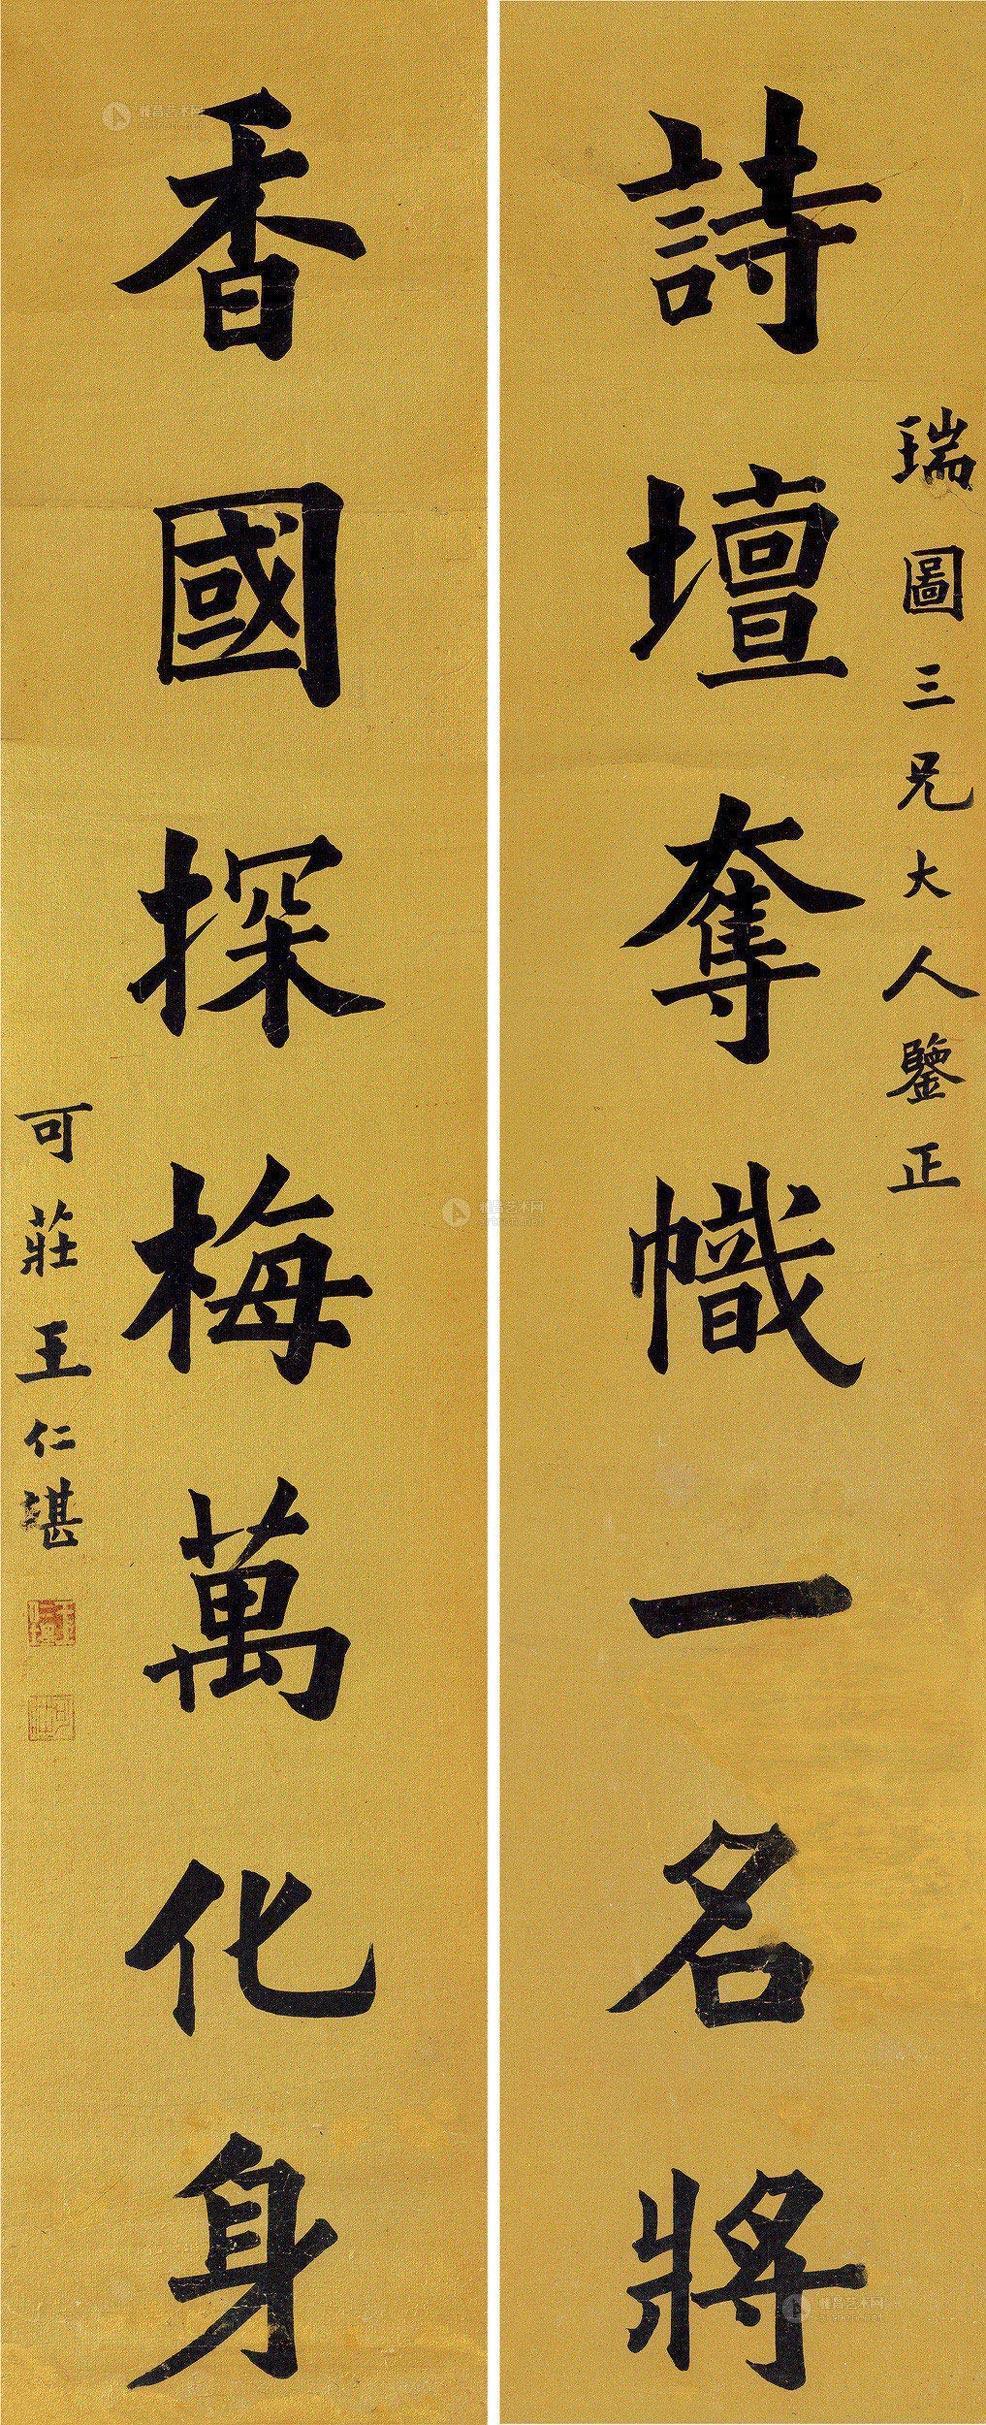 瑞圖三兄大人鑒正
詩壇奪幟一名將
香國探梅萬化身
可莊王仁堪
雅昌艺术网